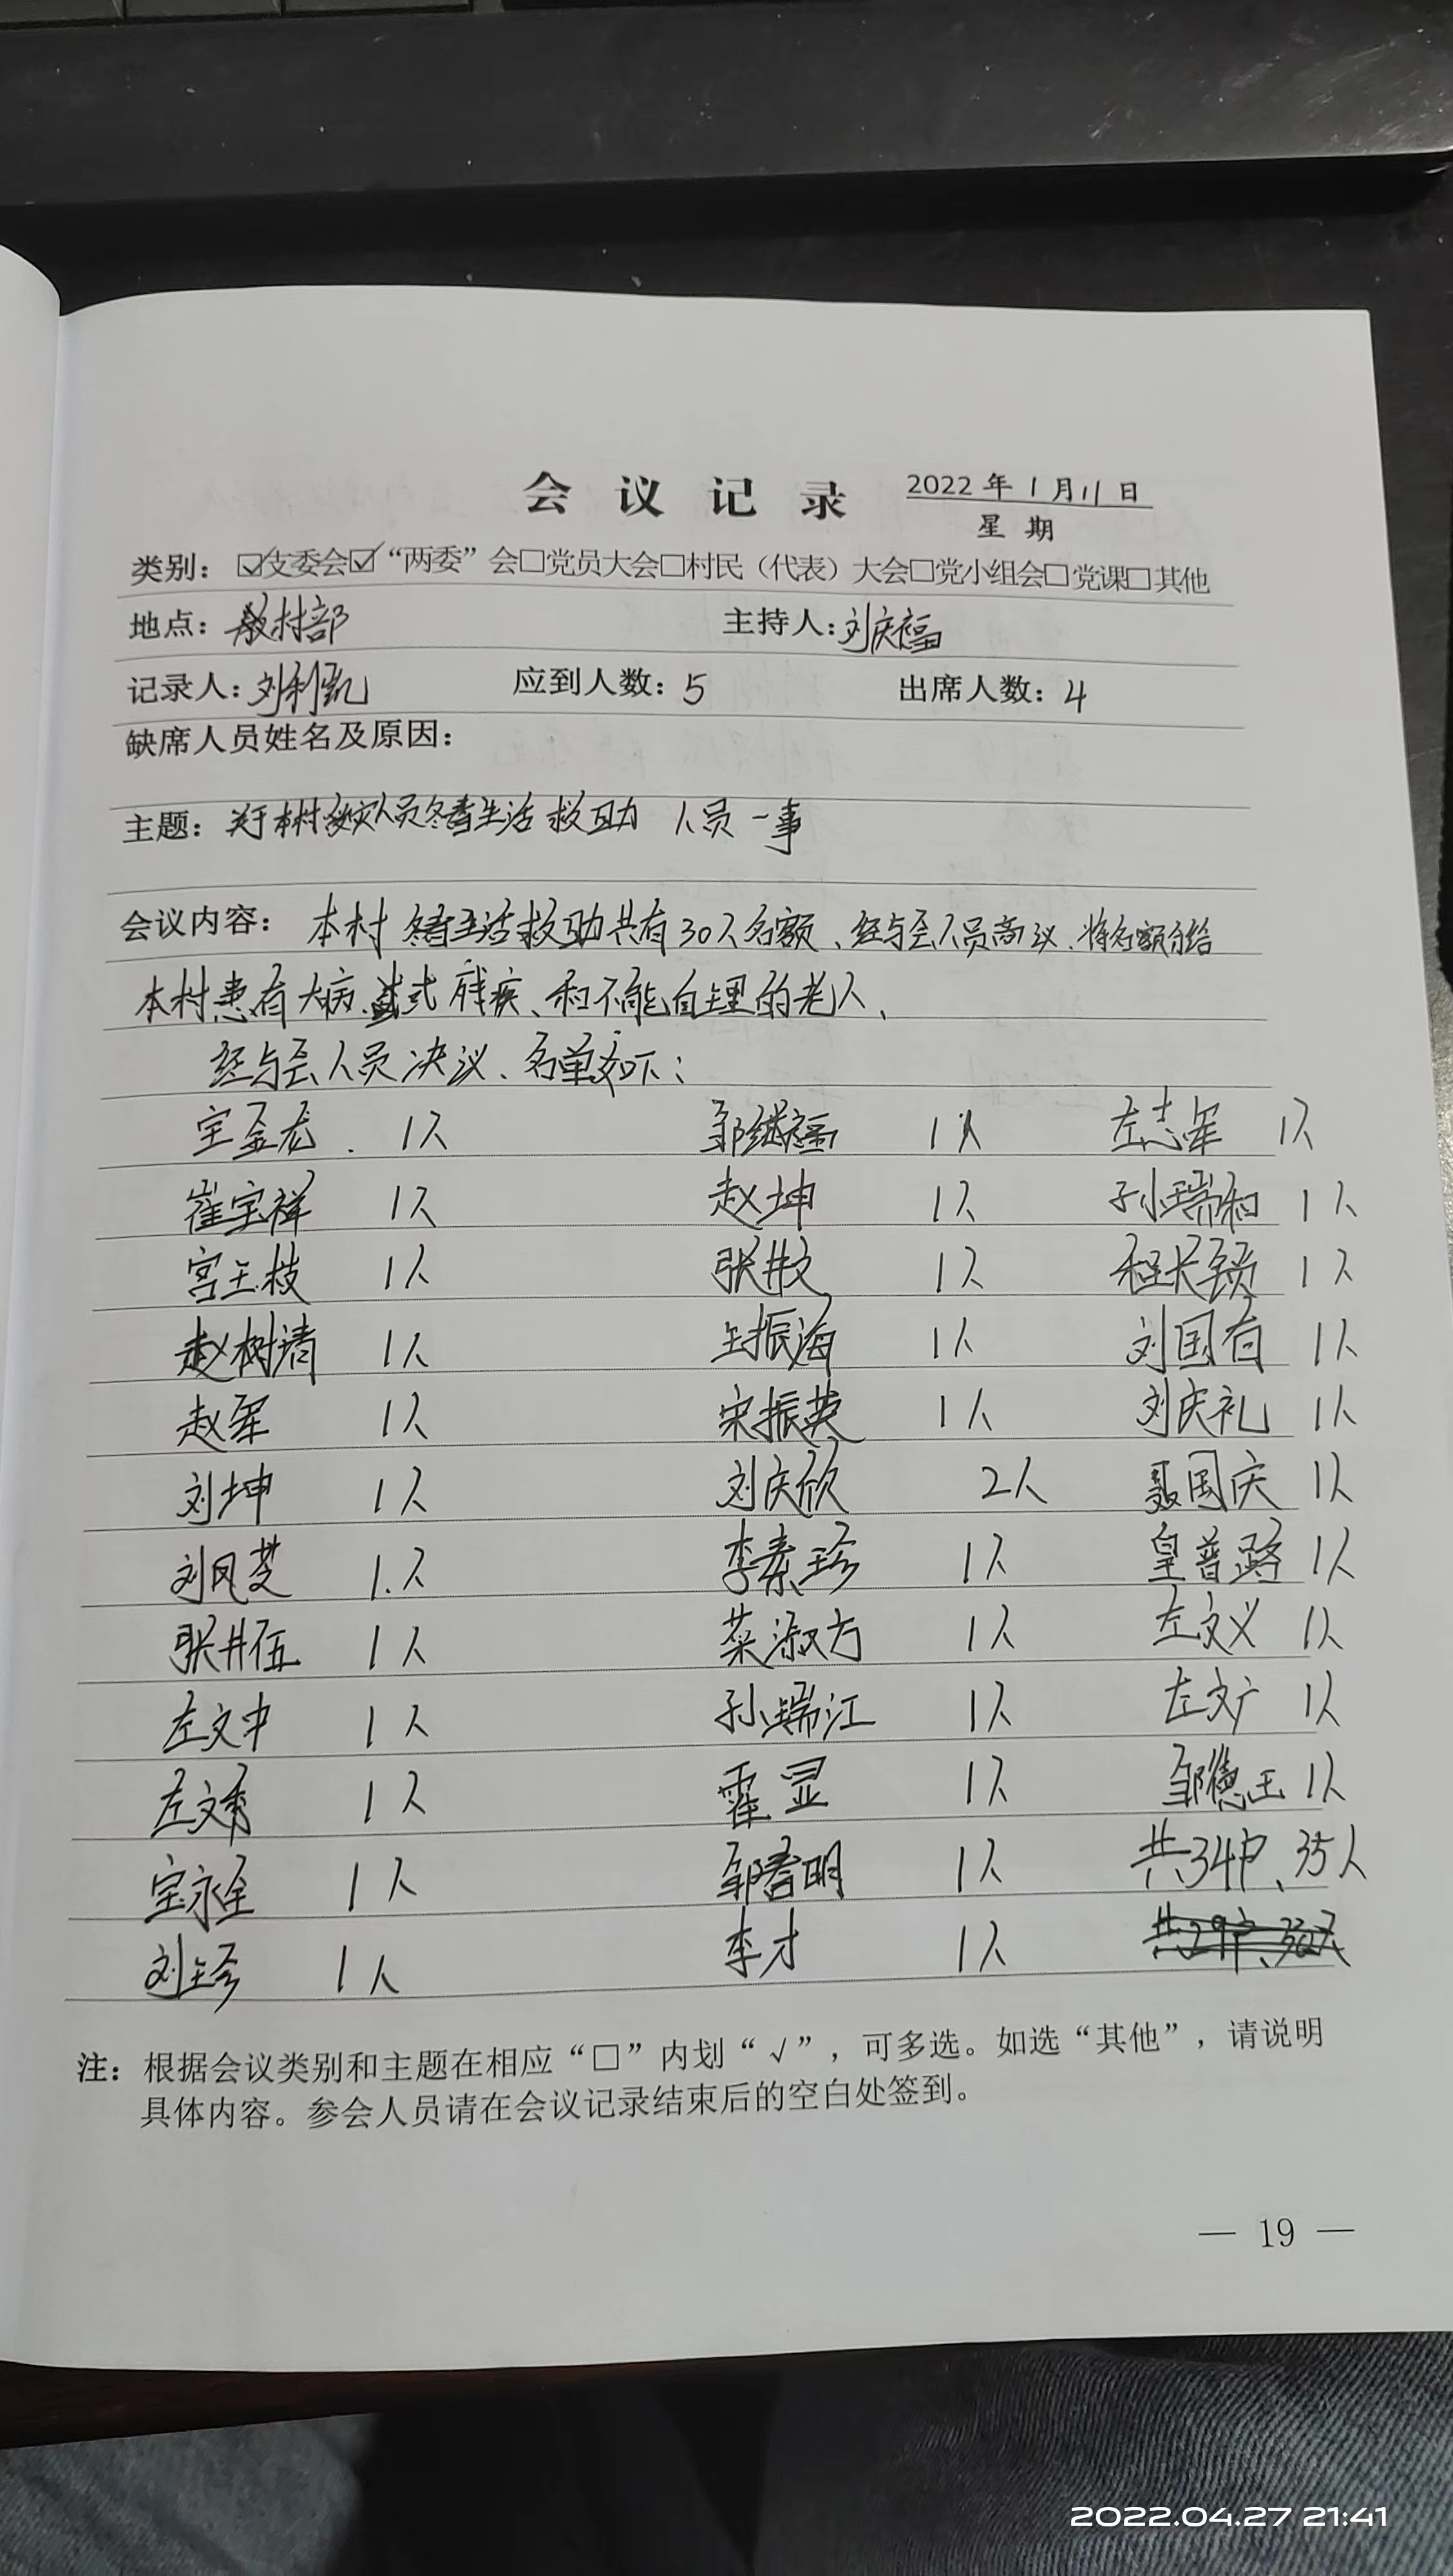 会议记录 2022年1月11日
星期
类别：☑支委会☑“两委”会□党员大会□村民（代表）大会□党小组会□党课□其他
地点：村部 主持人：刘庆福
记录人：刘利凯 应到人数：5 出席人数：4
缺席人员姓名及原因：
主题：关于本村受灾人员冬春生活救助 人员一事
会议内容：本村冬春生活救助共有30人名额、经与会人员商议、将名额分给
本村患有大病、残疾、和不能自理的老人、
经与会人员决议、名单如下：
宝金龙 1人 邹继福 1人 左志军 1人
崔宝祥 1人 赵坤 1人 孙瑞和 1人
宫玉枝 1人 张井文 1人 程长锁 1人
赵树清 1人 王振海 1人 刘国有 1人
赵军 1人 宋振英 1人 刘庆礼 1人
刘坤 1人 刘庆欣 2人 聂国庆 1人
刘凤芝 1人 李素珍 1人 皇普路 1人
张井伍 1人 菜淑方 1人 左文义 1人
左文中 1人 孙瑞江 1人 左文广 1人
左文秀 1人 霍显 1人 邹德玉 1人
宝永全 1人 邹春明 1人 共34户、35人
刘玉珍 1人 李才 1人 共29户、30人
注：根据会议类别和主题在相应“□”内划“√”，可多选。如选“其他”，请说明
具体内容。参会人员请在会议记录结束后的空白处签到。
— 19 —
2022.04.27 21:41